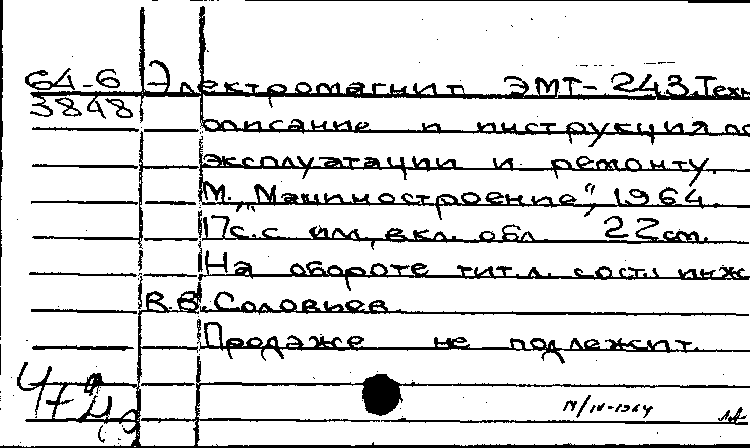 64-6 Электромагнит ЭМТ-243. Техн
3848
описание и инструкция по
эксплуатации и ремонту.
М., „Машиностроение", 1964.
17с. с илл., вкл. обл. 22 см.
На обороте тит. л. сост.: инж
В.В. Соловьев.
Продаже не подлежит.